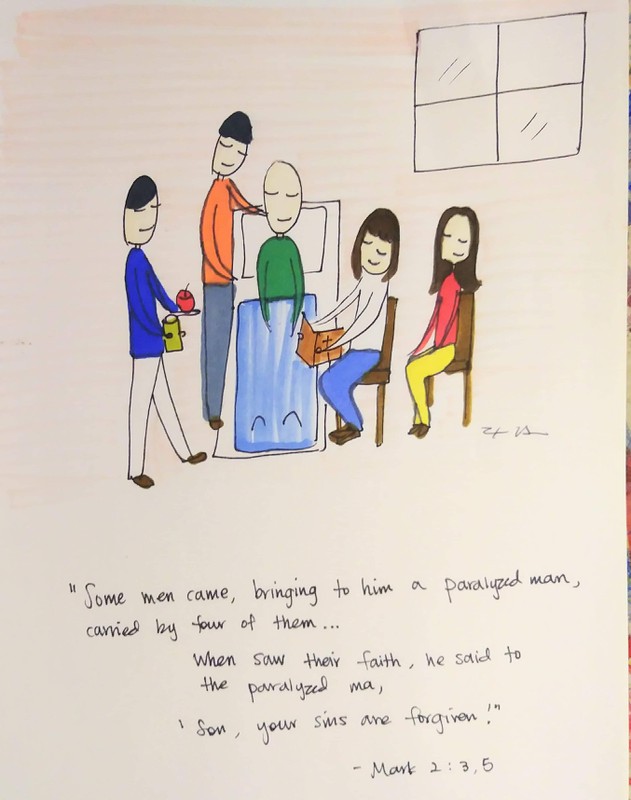 "Some men came, bringing to him a paralyzed man,
carried by four of them...
When saw their faith, he said to
the paralyzed ma,
'Son, your sins are forgiven!"
- Mark 2:3,5